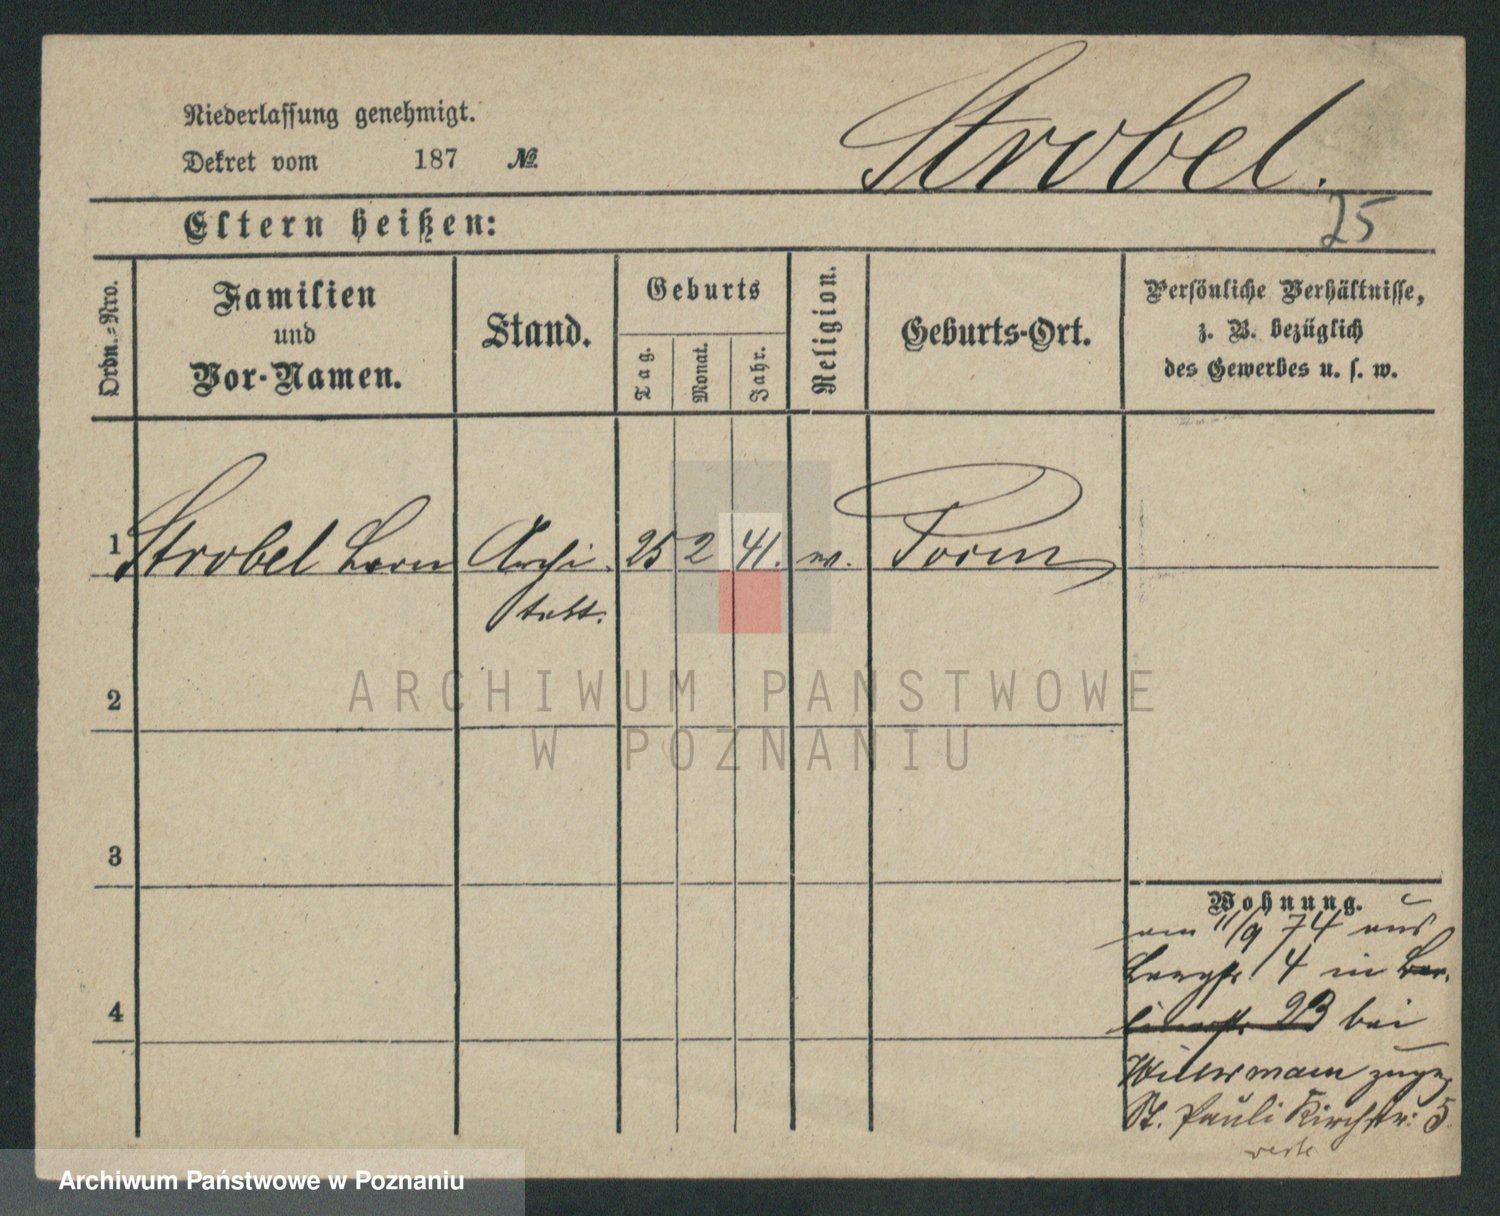 Niederlassung genehmigt.
Dekret vom 187 №
Strobel.
Eltern heißen:
25
Ordn.-Nro.
Familien
und
Vor-Namen.
Stand.
Geburts
Tag.
Monat.
Jahr.
Religion.
Geburts-Ort.
Persönliche Verhältnisse,
z. B. bezüglich
des Gewerbes u. s. w.
1 Strobel Archi 25 2 41.
tekt.
ARCHIWUM PAŃSTWOWE
W POZNANIU
2
3
4
Wohnung.
am 11/9 74 aus
4 in Ber-
linerstr 23 bei
zugez
St. Pauli Kirchstr: 5.
Archiwum Państwowe w Poznaniu